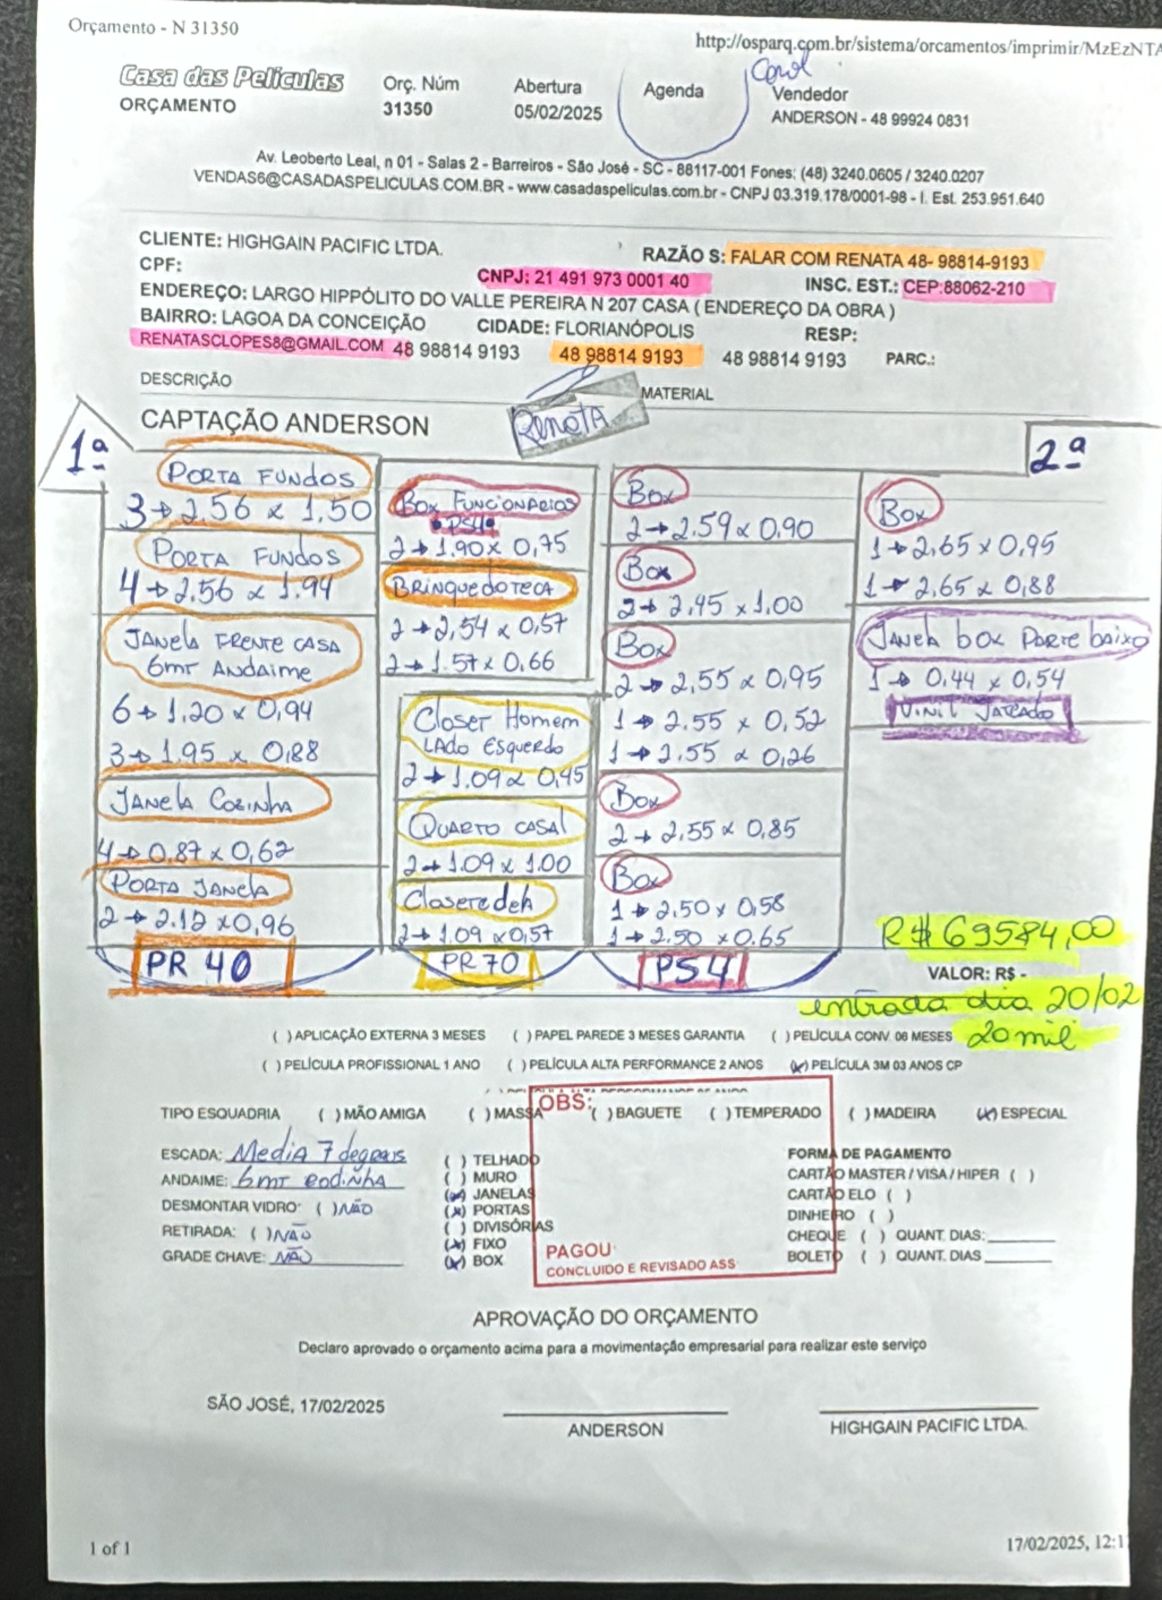 Orçamento - N 31350
http://osparq.com.br/sistema/orcamentos/imprimir/MzEzNTA
Casa das Películas
ORÇAMENTO
Orç. Núm
31350
Abertura
05/02/2025
Agenda
Vendedor
ANDERSON - 48 99924 0831
Av. Leoberto Leal, n 01 - Salas 2 - Barreiros - São José - SC - 88117-001 Fones: (48) 3240.0605 / 3240.0207
VENDAS6@CASADASPELICULAS.COM.BR - www.casadaspeliculas.com.br - CNPJ 03.319.178/0001-98 - I. Est. 253.951.640
CLIENTE: HIGHGAIN PACIFIC LTDA.
RAZÃO S: FALAR COM RENATA 48- 98814-9193
CPF:
CNPJ: 21 491 973 0001 40
INSC. EST.: CEP:88062-210
ENDEREÇO: LARGO HIPPÓLITO DO VALLE PEREIRA N 207 CASA ( ENDEREÇO DA OBRA )
BAIRRO: LAGOA DA CONCEIÇÃO
CIDADE: FLORIANÓPOLIS
RESP:
RENATASCLOPES8@GMAIL.COM 48 98814 9193
48 98814 9193
48 98814 9193
PARC.:
DESCRIÇÃO
MATERIAL
CAPTAÇÃO ANDERSON
Renata
1ª
PORTA FUNDOS
3 → 2.56 x 1,50
PORTA FUNDOS
4 → 2,56 x 1.94
JANELA FRENTE CASA
6mt Andaime
6 → 1,20 x 0,94
3 → 1.95 x 0,88
JANELA COZINHA
4 → 0,87 x 0,62
PORTA JANELA
2 → 2.12 x 0,96
PR 40
Box FUNCIONARIOS
PS4
2 → 1.90 x 0,75
BRINQUEDOTECA
2 → 2,54 x 0,57
2 → 1.57 x 0.66
Closer Homem
LADO ESQUERDO
2 → 1.09 x 0,45
QUARTO CASAL
2 → 1.09 x 1.00
2 → 1.09 x 0,57
PR 70
Box
2 → 2.59 x 0,90
Box
2 → 2.45 x 1,00
Box
2 → 2,55 x 0,95
1 → 2.55 x 0,52
1 → 2.55 x 0,26
Box
2 → 2,55 x 0,85
Box
1 → 2,50 x 0,58
1 → 2.50 x 0.65
PS4
2ª
Box
1 → 2,65 x 0,95
1 → 2,65 x 0,88
JANELA box PORTE baixo
1 → 0.44 x 0,54
VINIL JATEADO
R$ 69584,00
VALOR: R$ -
entrada dia 20/02
20 mil
( ) APLICAÇÃO EXTERNA 3 MESES ( ) PAPEL PAREDE 3 MESES GARANTIA ( ) PELÍCULA CONV. 06 MESES
( ) PELÍCULA PROFISSIONAL 1 ANO ( ) PELÍCULA ALTA PERFORMANCE 2 ANOS (x) PELÍCULA 3M 03 ANOS CP
TIPO ESQUADRIA ( ) MÃO AMIGA ( ) MASSA ( ) BAGUETE ( ) TEMPERADO ( ) MADEIRA (x) ESPECIAL
OBS:
ESCADA: Media 7 degraus
ANDAIME: 6mt rodinha
DESMONTAR VIDRO: ( ) NÃO
RETIRADA: ( ) NÃO
GRADE CHAVE: NÃO
( ) TELHADO
( ) MURO
(x) JANELAS
(x) PORTAS
( ) DIVISÓRIAS
(x) FIXO
(x) BOX
PAGOU
CONCLUIDO E REVISADO ASS
FORMA DE PAGAMENTO
CARTÃO MASTER / VISA / HIPER ( )
CARTÃO ELO ( )
DINHEIRO ( )
CHEQUE ( ) QUANT. DIAS:
BOLETO ( ) QUANT. DIAS
APROVAÇÃO DO ORÇAMENTO
Declaro aprovado o orçamento acima para a movimentação empresarial para realizar este serviço
SÃO JOSÉ, 17/02/2025
ANDERSON
HIGHGAIN PACIFIC LTDA.
1 of 1
17/02/2025, 12:1